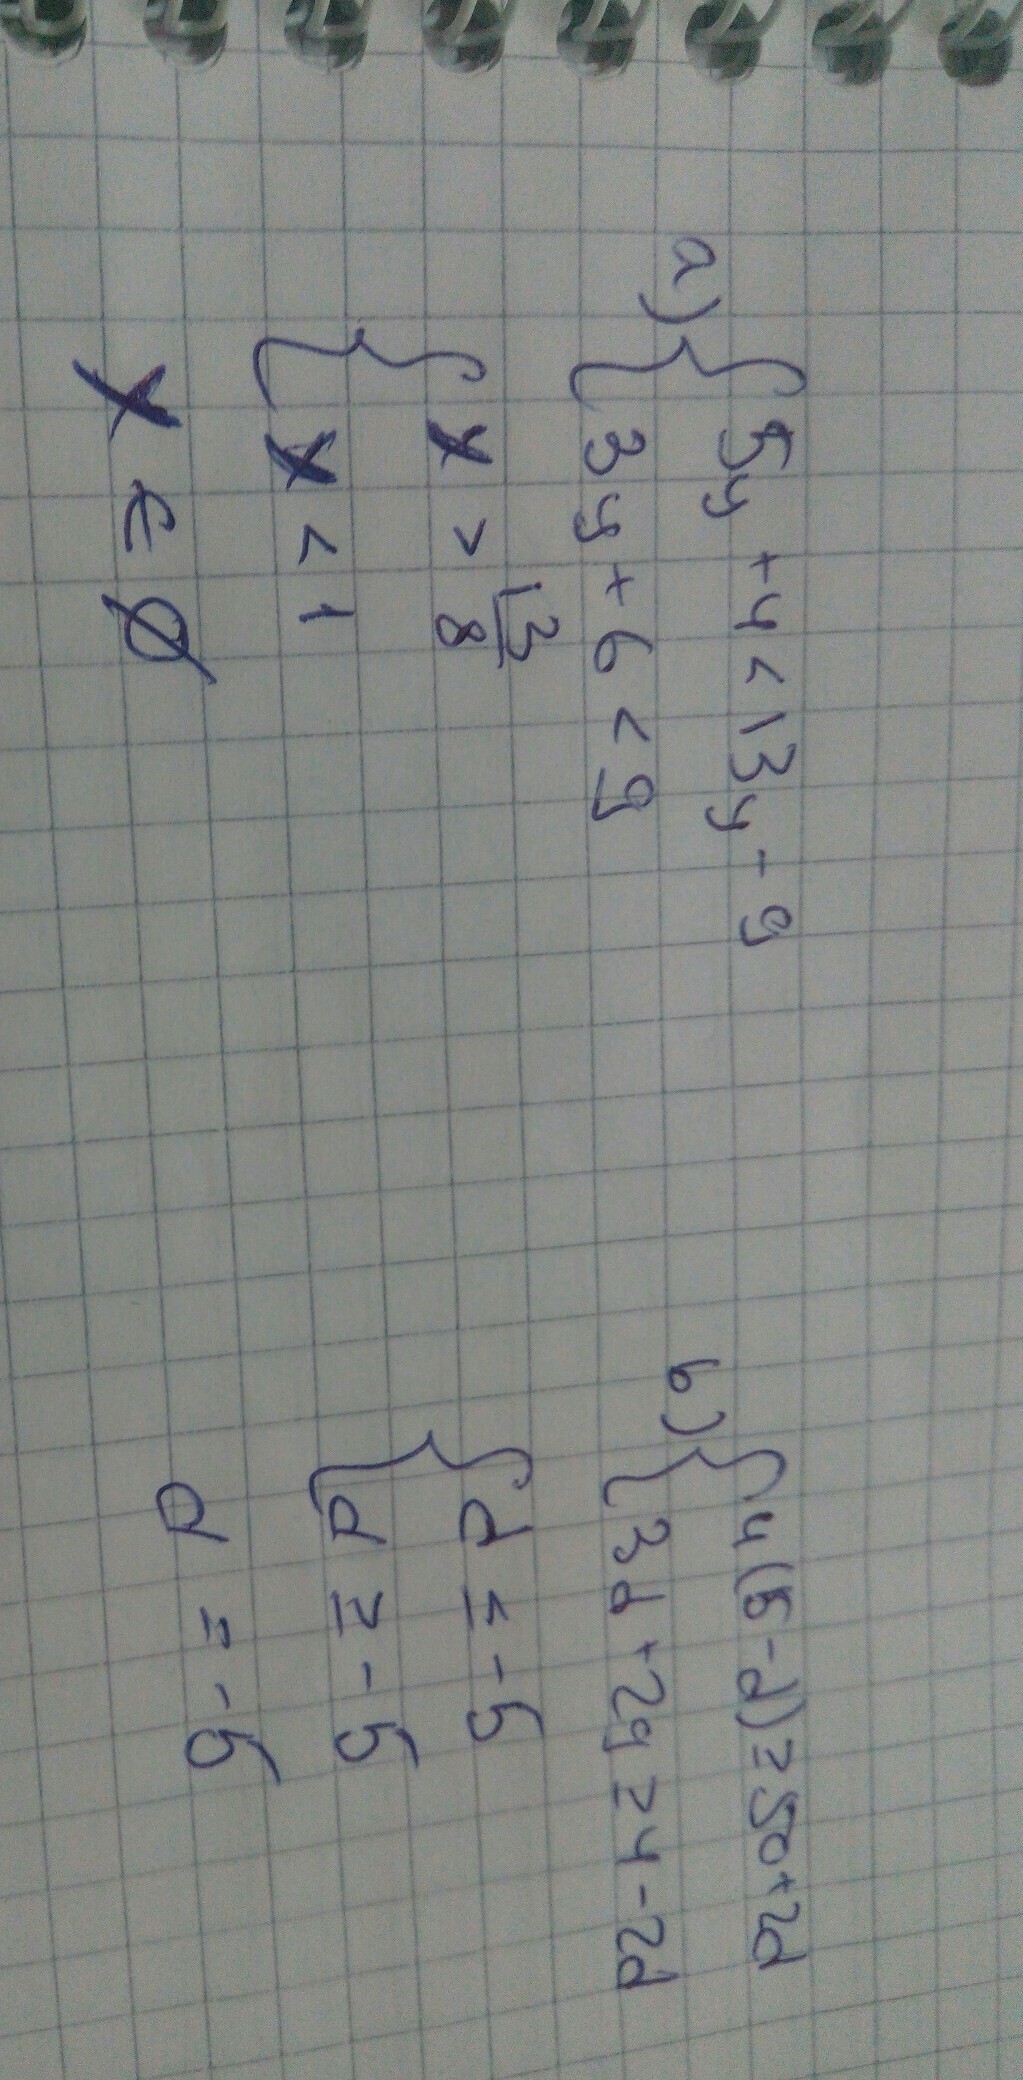 а) { 5y + 4 < 13y - 9
{ 3y + 6 < 9
{ x > 13/8
{ x < 1
x ∈ ∅
b) { 4(5-d) ≥ 50+2d
{ 3d + 29 ≥ 4 - 2d
{ d ≤ -5
{ d ≥ -5
d = -5